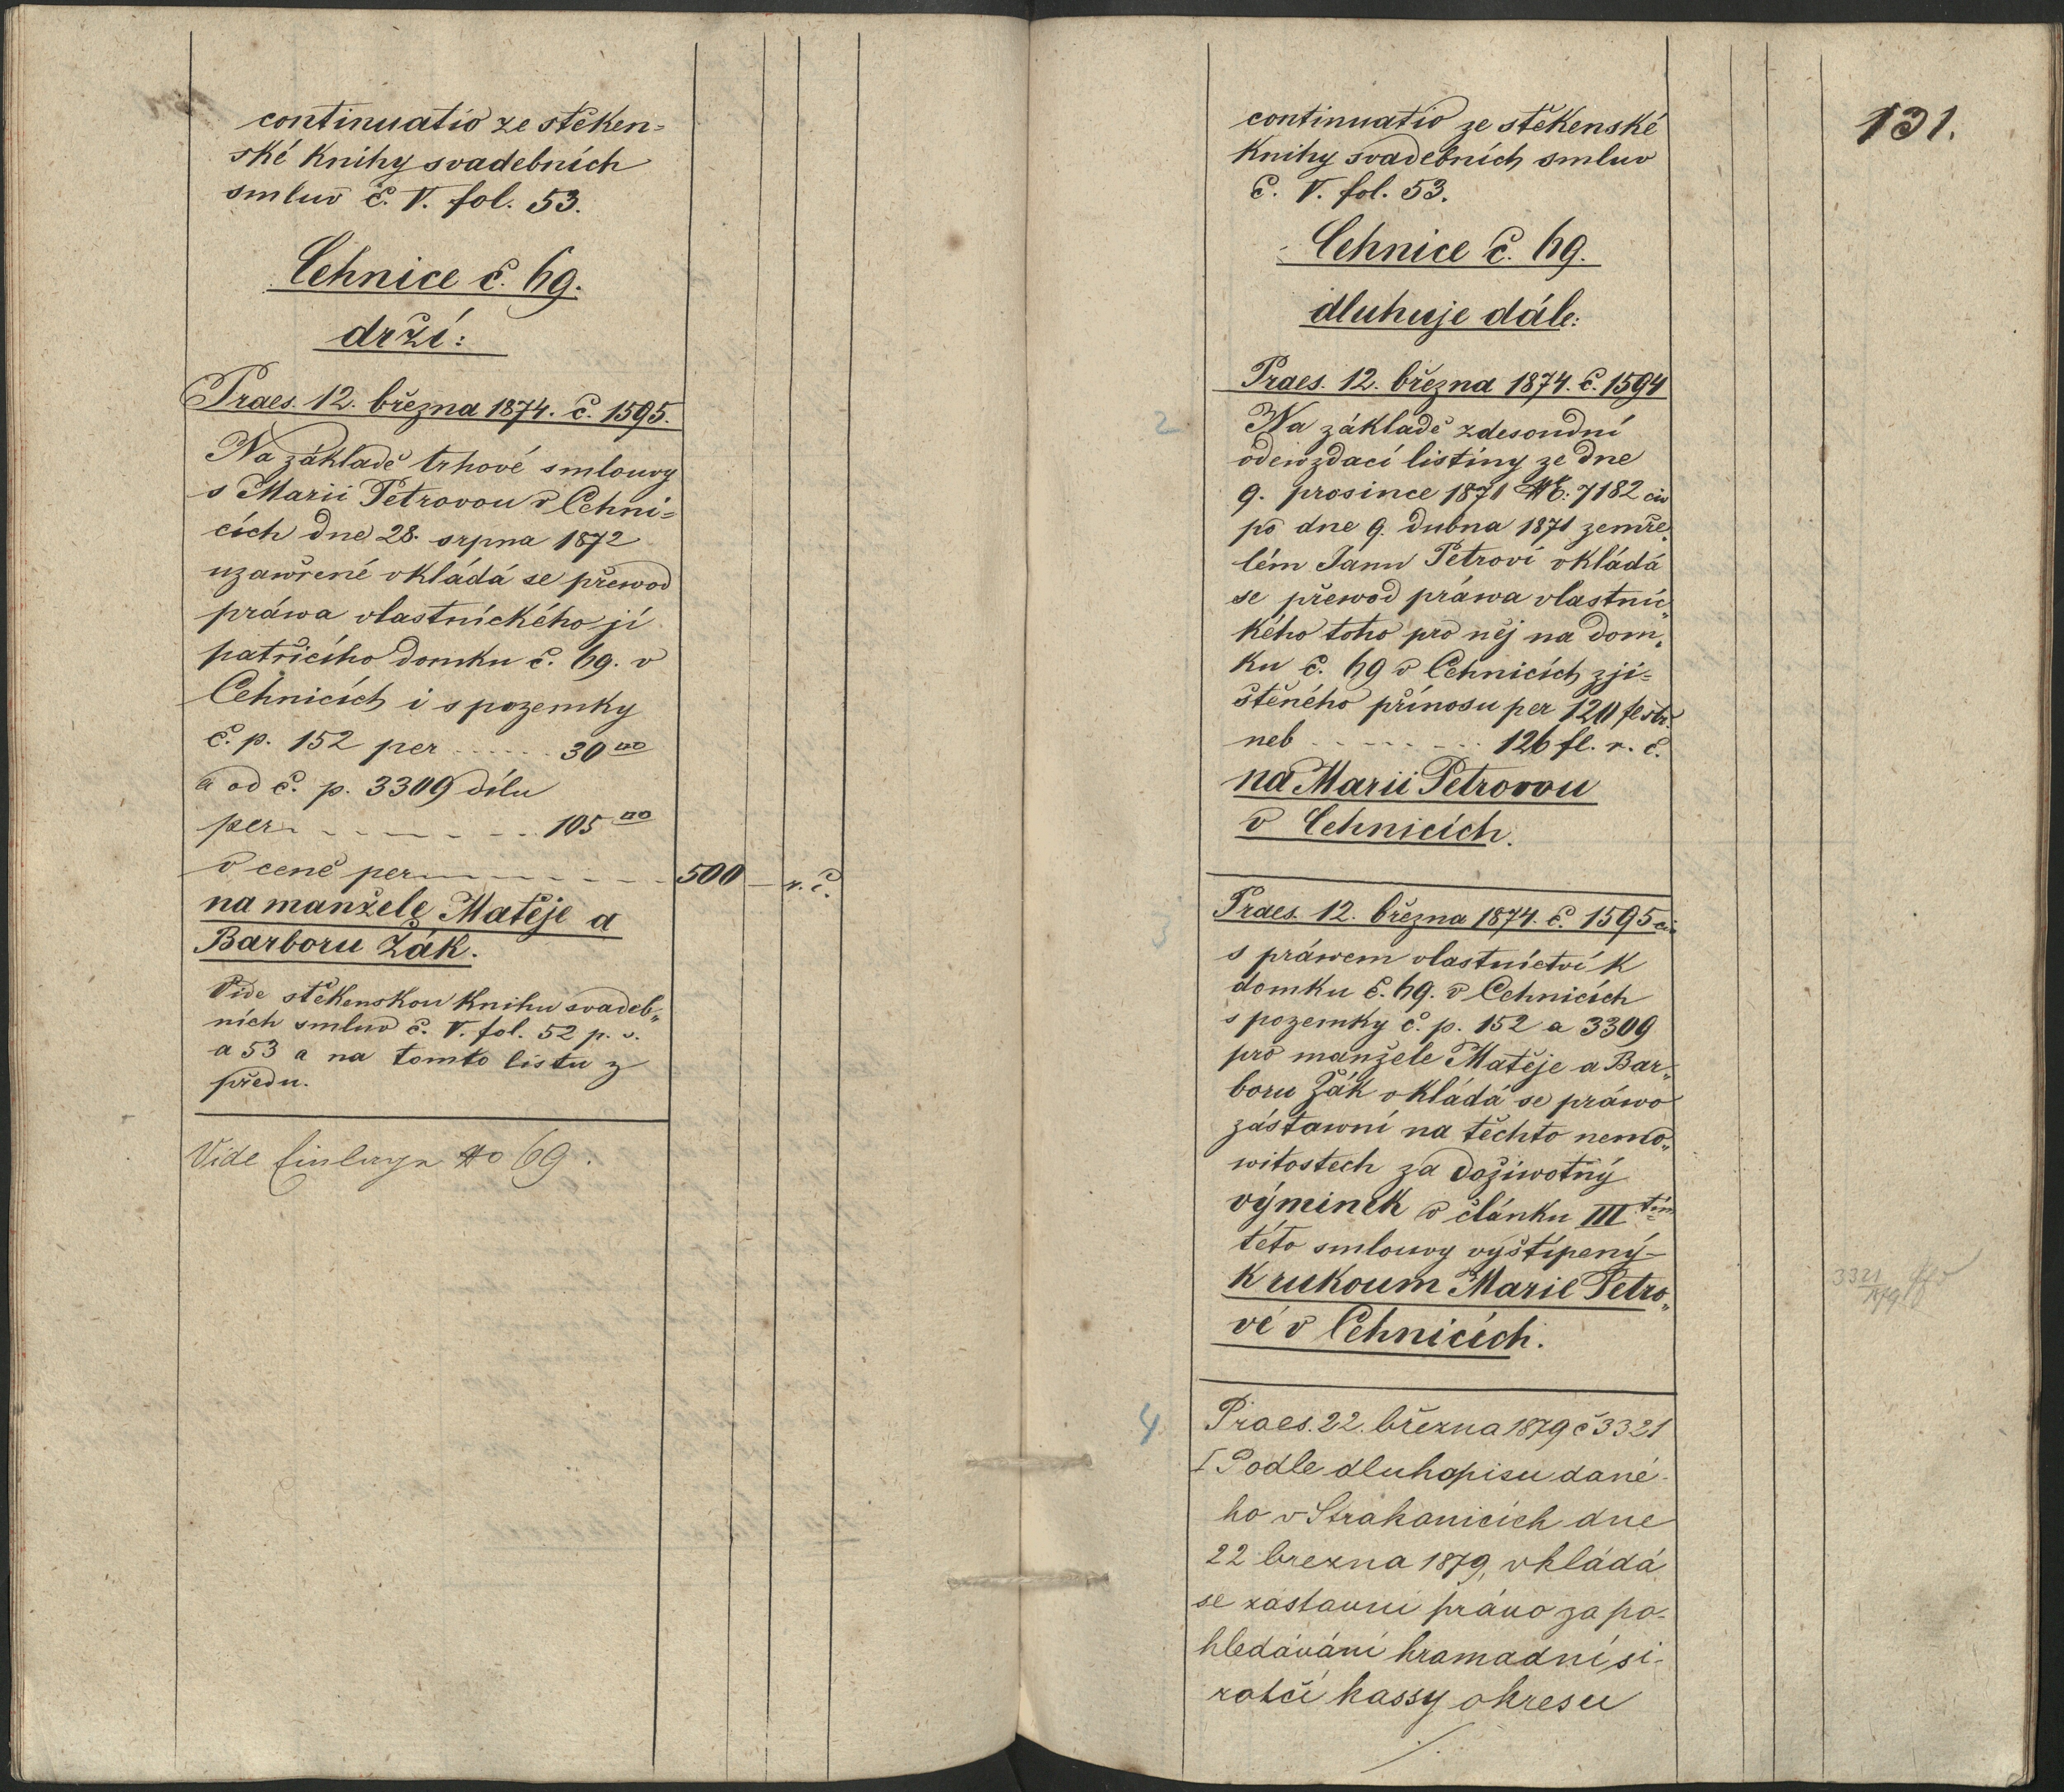 continuatio ze štěken=
ské knihy svadebních
smluv č. V. fol. 53.
Cehnice č. 69.
drží:
Praes. 12. března 1874. č. 1595.
Na základě trhové smlouvy
s Marii Petrovou v Cehni=
cích dne 28. srpna 1872
uzawřené vkládá se přewod
práwa vlastnického jí
patřícího domku č. 69. v
Cehnicích i s pozemky
č. p. 152 per ...... 30 □°
a od č. p. 3309 dílu
per ........ 105 □°
v ceně per ........ 500 – r. č.
na manžele Matěje a
Barboru Žák.
Vide štěkenskou knihu svadeb„
ních smluv č. V. fol. 52 p. v.
a 53 a na tomto listu z
předu.
Vide Einlage No 69.
131.
continuatio ze štěkenské
knihy svadebních smluv
č. V. fol. 53.
Cehnice č. 69.
dluhuje dále:
Praes. 12. března 1874. č. 1594
2 Na základě zdesoudní
odewzdací listiny ze dne
9. prosince 1871 NE: 7182 civ
po dne 9. dubna 1871 zemře„
lém Janu Petrovi vkládá
se přewod práwa vlastnic„
kého toho pro něj na dom„
ku č. 69 v Cehnicích zji=
štěného přínosu per 120 fl stř.
neb ........ 126 fl. r. č.
na Marii Petrovou
v Cehnicích.
Praes. 12. března 1874. č. 1595 civ
3 s práwem vlastnictví k
domku č. 69. v Cehnicích
s pozemky č. p. 152 a 3309
pro manžele Matěje a Bar„
boru Žák vkládá se práwo
zástawní na těchto nemo„
witostech za doživotný
výminek v článku III tím
této smlouvy vyštípený –
k rukoum Marie Petro„
vé v Cehnicích.
3321
1879
4 Praes. 22. března 1879 č 3321
I Podle dluhopisu dané-
ho v Strakonicích dne
22 brezna 1879, vkládá
se zástavní právo za po-
hledávání hramadní si-
rotčí kassy okresu
./.